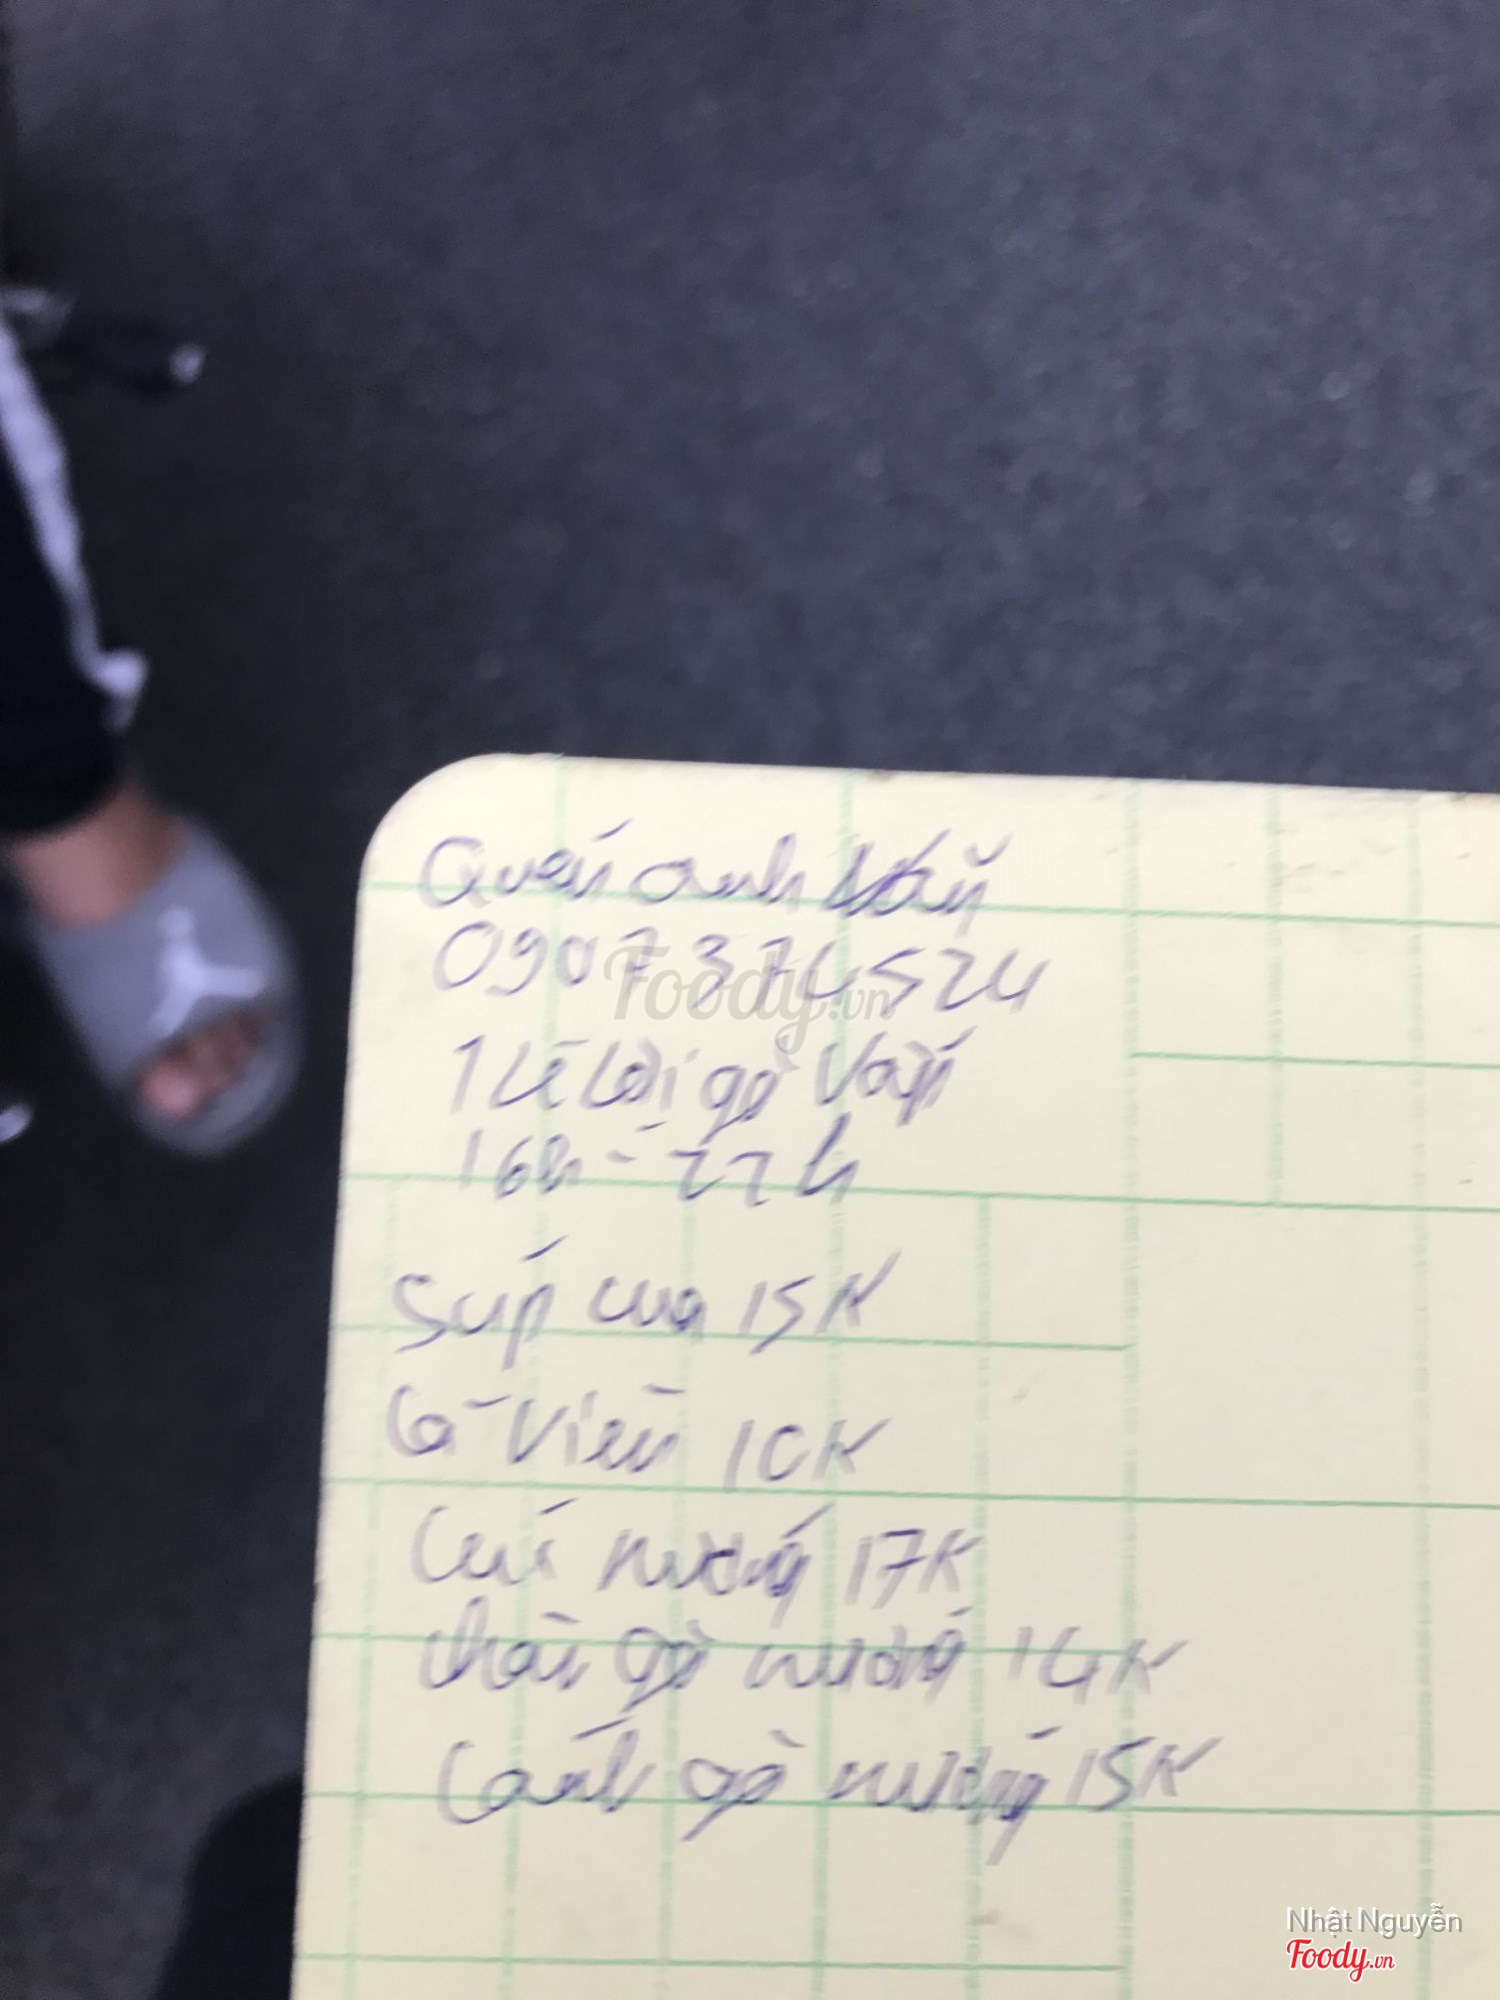 Quán anh
0907374524
1 Lê Lợi gò Vấp
16h - 22h
Súp cua 15K
Cá Viên 10K
Cút nướng 17K
chân gà nướng 14K
Cánh gà nướng 15K
Foody.vn
Nhật Nguyễn
Foody.vn